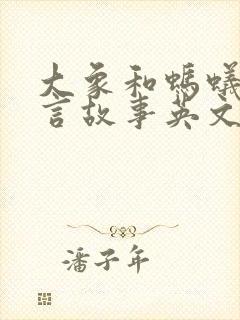 大象和蚂蚁
言故事英文
潘子年